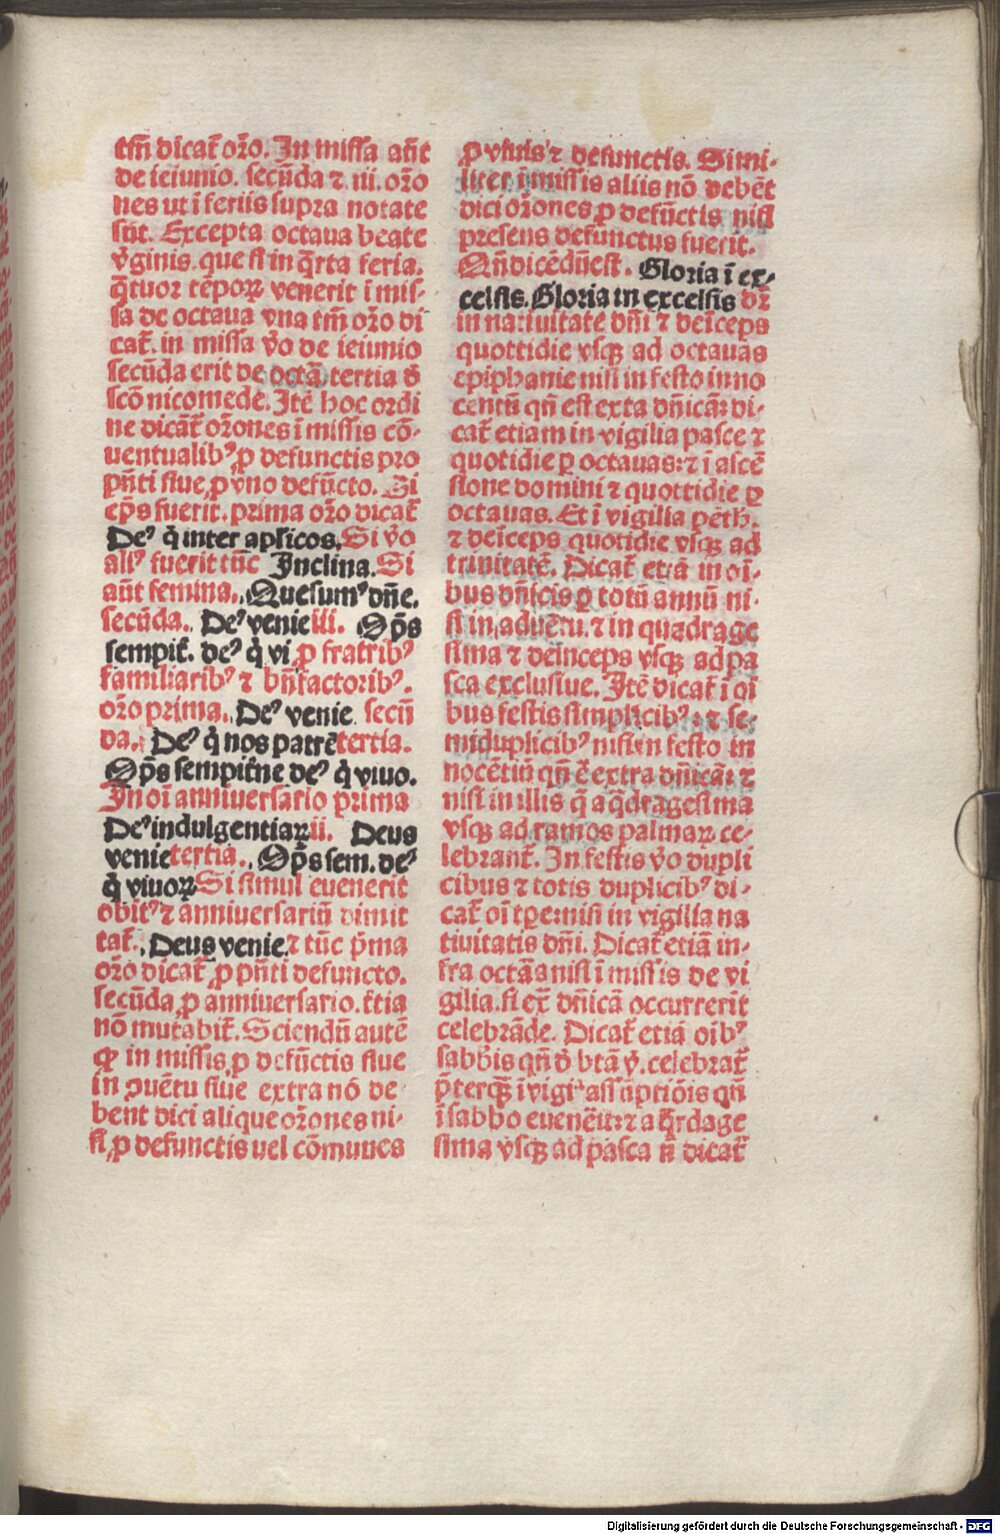 tm̄ dicat̄ or̄o. In missa aūt
de ieiunio. secūda ⁊ iii. or̄o
nes ut ī feriis supra notate
sūt. Excepta octaua beate
v̄ginis. que si in q̄rta feria.
q̄tuor tēpoꝝ venerit ī mis-
sa de octaua vna tm̄ or̄o di
cat̄. in missa v̄o de ieiunio
secūda erit de octā tertia d̄
scō nicomede. Itē hoc ordi
ne dicāt̄ or̄ones ī missis cō-
uentualibꝰ ꝓ defunctis pro
pn̄ti siue ꝓ vno defūcto. Si
ep̄s fuerit. prima or̄o dicat̄
Deꝰ q̄ inter aplicos. Si v̄o
aliꝰ fuerit tūc Inclina. Si
aūt femina. Quesumꝰ dn̄e.
secūda. Deꝰ venie iii. Op̄s
sempit̄. deꝰ q̄ vi ꝓ fratribꝰ
familiaribꝰ ⁊ bn̄factoribꝰ.
or̄o prima. Deꝰ venie secū
da. Deꝰ q̄ nos patrē tertia.
Op̄s sempit̄ne deꝰ q̄ viuo.
In oī anniuersario prima
Deꝰ indulgentiaꝝ ii. Deus
venie tertia. Op̄s sem. deꝰ
q̄ viuoꝝ Si simul euenerit
obitꝰ ⁊ anniuersariū dimit
tat̄. Deus venie. ⁊ tūc p̄ma
or̄o dicat̄ ꝓ pn̄ti defuncto.
secūda ꝓ anniuersario. t̄tia
nō mutabit̄. Sciendū autē
ꝙ in missis ꝓ defūctis siue
in ꝯuētu siue extra nō de-
bent dici alique or̄ones ni-
si ꝓ defunctis uel cōmunes
ꝓ viuis ⁊ defunctis. Simi-
liter ī missis aliis nō debēt
dici or̄ones ꝓ defūctis nisi
presens defunctus fuerit.
Qn̄ dicēdū est. Gloria ī ex-
celsis. Gloria in excelsis dr̄
in natiuitate dn̄i ⁊ deīceps
quottidie vsqꝫ ad octauas
epiphanie nisi in festo inno
centū qn̄ est exta dn̄icā: di-
cat̄ etiam in vigilia pasce ⁊
quotidie ꝑ octauas: ⁊ ī ascē
sione domini ⁊ quottidie ꝑ
octauas. Et ī vigilia pēth.
⁊ deīceps quotidie vsqꝫ ad
trinitatē. Dicat̄ etiā in oī-
bus dn̄icis ꝑ totū annū ni-
si in aduētu. ⁊ in quadrage
sima ⁊ deinceps vsqꝫ ad pa
sca exclusiue. Itē dicat̄ ī oī
bus festis simplicibꝰ ⁊ se-
miduplicibꝰ nisi in festo in
nocētiū qn̄ ē extra dn̄icā: ⁊
nisi in illis q̄ a q̄dragesima
vsqꝫ ad ramos palmaꝝ ce-
lebrant̄. In festis v̄o dupli
cibus ⁊ totis duplicibꝰ di-
cat̄ oī tꝑe nisi in vigilia na
tiuitatis dn̄i. Dicat̄ etiā in-
fra octāa nisi ī missis de vi
gilia. si ex̄ dn̄icā occurrerit
celebrāde. Dicat̄ etiā oībꝰ
sabb̄is qn̄ d̄ btā v̄. celebrat̄
p̄terqꝫ ī vigi assūptiōis qn̄
ī sabbo euenēit: ⁊ a q̄rdage
sima vsqꝫ ad pasca n̄ dicat̄
Digitalisierung gefördert durch die Deutsche Forschungsgemeinschaft - DFG